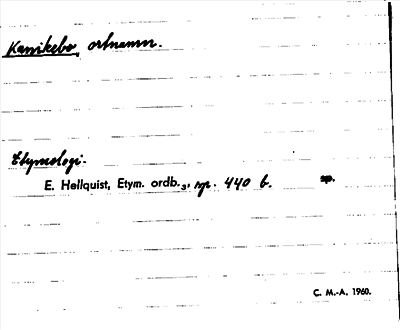 Kannikebo, ortnamn.
Etymologi.
E. Hellquist, Etym. ordb.3, sp. 440 b. sp.
C. M.-A. 1960.